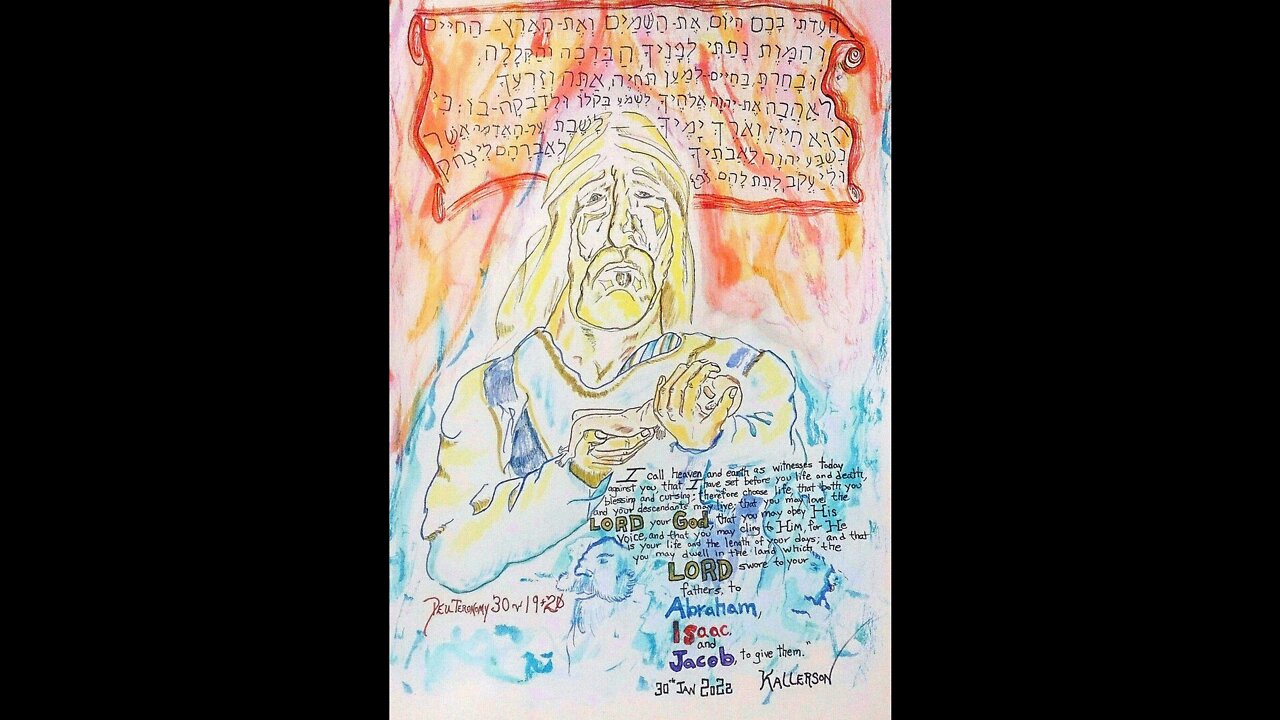 הַעִדֹתִי בָכֶם הַיּוֹם, אֶת-הַשָּׁמַיִם וְאֶת-הָאָרֶץ--הַחַיִּים
וְהַמָּוֶת נָתַתִּי לְפָנֶיךָ הַבְּרָכָה וְהַקְּלָלָה,
וּבָחַרְתָּ, בַּחַיִּים-לְמַעַן תִּחְיֶה, אַתָּה וְזַרְעֶךָ
לְאַהֲבָה אֶת-יְהוָה אֱלֹהֶיךָ, לִשְׁמֹעַ בְּקֹלוֹ וּלְדָבְקָה-בוֹ: כִּי
הוּא חַיֶּיךָ וְאֹרֶךְ יָמֶיךָ לָשֶׁבֶת עַל-הָאֲדָמָה אֲשֶׁר
נִשְׁבַּע יְהוָה לַאֲבֹתֶיךָ לְאַבְרָהָם לְיִצְחָק
וּלְיַעֲקֹב לָתֵת לָהֶם.
I call heaven and earth as witnesses today
against you, that I have set before you life and death,
blessing and cursing; therefore choose life, that both you
and your descendants may live; that you may love the
LORD your God, that you may obey His
voice, and that you may cling to Him, for He
is your life and the length of your days; and that
you may dwell in the land which the
LORD swore to your
fathers, to
Abraham,
Isaac,
and
Jacob, to give them."
DEUTERONOMY 30~19+20
30th JAN 2022 KALLERSON